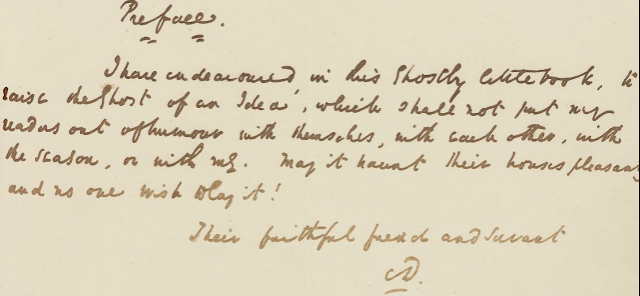 Preface.
I have endeavoured in this Ghostly little book, to
raise the Ghost of an Idea, which shall not put my
readers out of humour with themselves, with each other, with
the season, or with me. May it haunt their houses pleasant
and no one wish to lay it!
Their faithful friend and servant
CD.